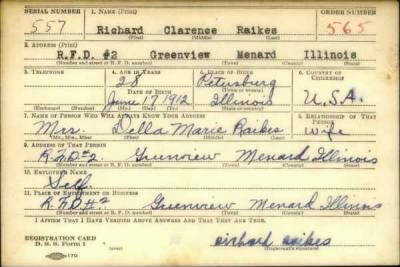 SERIAL NUMBER 1. NAME (Print) ORDER NUMBER
557 Richard Clarence Raikes 565
(First) (Middle) (Last)
2. ADDRESS (Print)
R.F.D. #2 Greenview Menard Illinois
(Number and street or R. F. D. number) (Town) (County) (State)
3. TELEPHONE 4. AGE IN YEARS 5. PLACE OF BIRTH 6. COUNTRY OF CITIZENSHIP
28 Petersburg
DATE OF BIRTH
June 17 1912 Illinois U.S.A.
(Mo.) (Day) (Yr.) (State or country)
7. NAME OF PERSON WHO WILL ALWAYS KNOW YOUR ADDRESS 8. RELATIONSHIP OF THAT PERSON
Mrs. Della Marie Raikes wife
(Mr., Mrs., Miss) (First) (Middle) (Last)
9. ADDRESS OF THAT PERSON
R.F.D#2. Greenview Menard Illinois
(Number and street or R. F. D. number) (Town) (County) (State)
10. EMPLOYER'S NAME
Self.
11. PLACE OF EMPLOYMENT OR BUSINESS
R.F.D#2 Greenview Menard Illinois
(Number and street or R. F. D. number) (Town) (County) (State)
I AFFIRM THAT I HAVE VERIFIED ABOVE ANSWERS AND THAT THEY ARE TRUE.
REGISTRATION CARD
D. S. S. Form 1 richard raikes
(Registrant's signature)